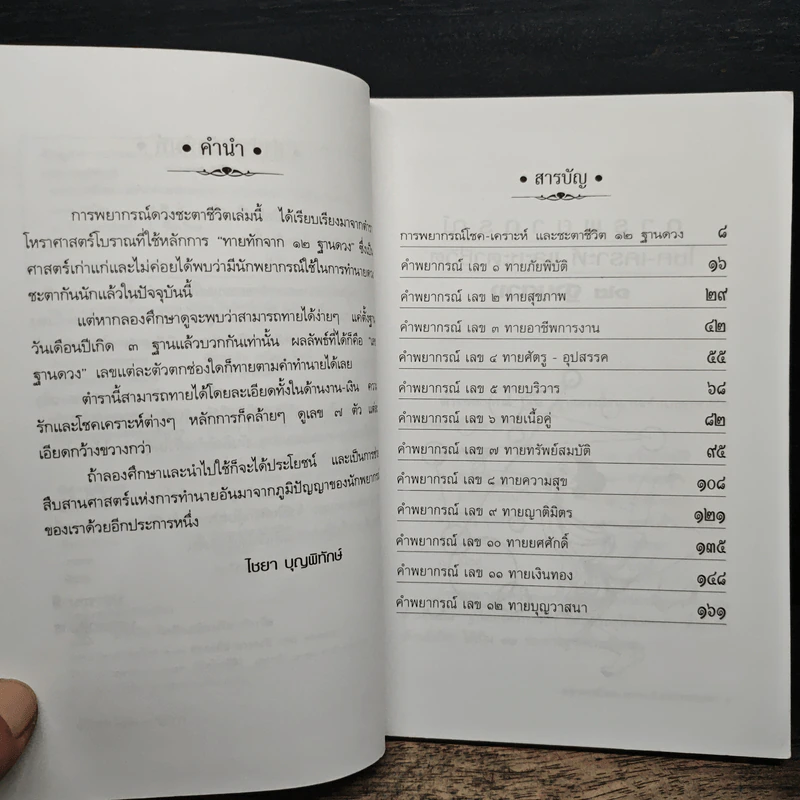 • คำนำ •
การพยากรณ์ดวงชะตาชีวิตเล่มนี้ ได้เรียบเรียงมาจากตำรา
โหราศาสตร์โบราณที่ใช้หลักการ "ทายทักจาก ๑๒ ฐานดวง" ซึ่งเป็น
ศาสตร์เก่าแก่และไม่ค่อยได้พบว่ามีนักพยากรณ์ใช้ในการทำนาย
ชะตากันนักแล้วในปัจจุบันนี้
แต่หากลองศึกษาดูจะพบว่าสามารถทายได้ง่ายๆ แค่ตั้งฐาน
วันเดือนปีเกิด ๓ ฐานแล้วบวกกันเท่านั้น ผลลัพธ์ที่ได้ก็คือ
ฐานดวง" เลขแต่ละตัวตกช่องใดก็ทายตามคำทำนายได้เลย
ตำรานี้สามารถทายได้โดยละเอียดทั้งในด้านงาน-เงิน
รักและโชคเคราะห์ต่างๆ หลักการก็คล้ายๆ ดูเลข ๗ ตัว
เอียดกว้างขวางกว่า
ถ้าลองศึกษาและนำไปใช้ก็จะได้ประโยชน์ และเป็นการ
สืบสานศาสตร์แห่งการทำนายอันมาจากภูมิปัญญาของนักพยากรณ์
ของเราด้วยอีกประการหนึ่ง
ไชยา บุญพิทักษ์
• สารบัญ •
การพยากรณ์โชค-เคราะห์ และชะตาชีวิต ๑๒ ฐานดวง ๘
คำพยากรณ์ เลข ๑ ทายภัยพิบัติ ๑๖
คำพยากรณ์ เลข ๒ ทายสุขภาพ ๒๙
คำพยากรณ์ เลข ๓ ทายอาชีพการงาน ๔๒
คำพยากรณ์ เลข ๔ ทายศัตรู - อุปสรรค ๕๕
คำพยากรณ์ เลข ๕ ทายบริวาร ๖๘
คำพยากรณ์ เลข ๖ ทายเนื้อคู่ ๘๒
คำพยากรณ์ เลข ๗ ทายทรัพย์สมบัติ ๙๕
คำพยากรณ์ เลข ๘ ทายความสุข ๑๐๘
คำพยากรณ์ เลข ๙ ทายญาติมิตร ๑๒๑
คำพยากรณ์ เลข ๑๐ ทายยศศักดิ์ ๑๓๕
คำพยากรณ์ เลข ๑๑ ทายเงินทอง ๑๔๘
คำพยากรณ์ เลข ๑๒ ทายบุญวาสนา ๑๖๑